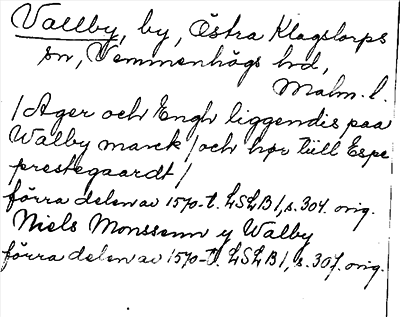 Vallby, by, Östra Klagstorps
sn, Vemmenhögs hd,
Malm. l.
/Ager och Engh liggendis paa
Walby marck/och hør tüll Espe
prestegaardt/
förra delen av 1570-t. LSLB1, s. 304. orig.
Niels Monssenn y Walby
förra delen av 1570-t. LSLB1, s. 307. orig.